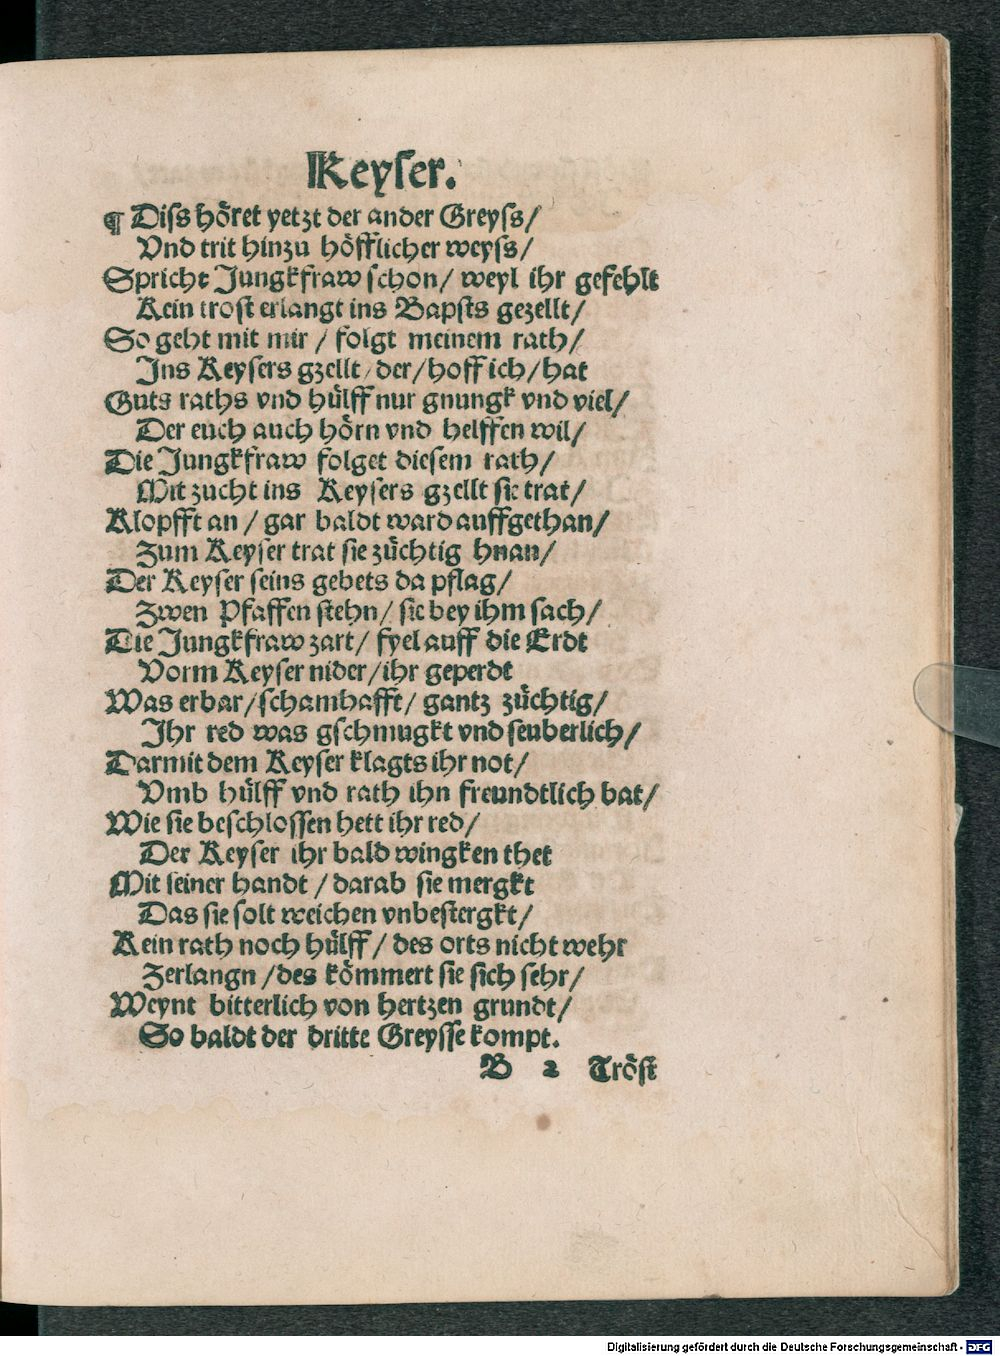 Keyser.
¶ Diss höret yetzt der ander Greyss/
Vnd trit hinzu höfflicher weyss/
Spricht Jungkfraw schon/ weyl ihr gefehlt
Kein trost erlangt ins Bapsts gezellt/
So geht mit mir / folgt meinem rath/
Ins Keysers gzellt/ der/ hoff ich/ hat
Guts raths vnd hülff nur gnungk vnd viel/
Der euch auch hörn vnd helffen wil/
Die Jungkfraw folget diesem rath/
Mit zucht ins Keysers gzellt sie trat/
Klopfft an / gar baldt ward auffgethan/
Zum Keyser trat sie züchtig hnan/
Der Keyser seins gebets da pflag/
Zwen Pfaffen stehn/ sie bey ihm sach/
Die Jungkfraw zart/ fyel auff die Erdt
Vorm Keyser nider/ ihr geperdt
Was erbar/ schamhafft/ gantz züchtig/
Ihr red was gschmugkt vnd seuberlich/
Darmit dem Keyser klagts ihr not/
Vmb hülff vnd rath ihn freundtlich bat/
Wie sie beschlossen hett ihr red/
Der Keyser ihr bald wingken thet
Mit seiner handt / darab sie mergkt
Das sie solt weichen vnbestergkt/
Kein rath noch hülff/ des orts nicht wehr
Zerlangn / des kömmert sie sich sehr/
Weynt bitterlich von hertzen grundt/
So baldt der dritte Greysse kompt.
B 2 Tröst
Digitalisierung gefördert durch die Deutsche Forschungsgemeinschaft - DFG